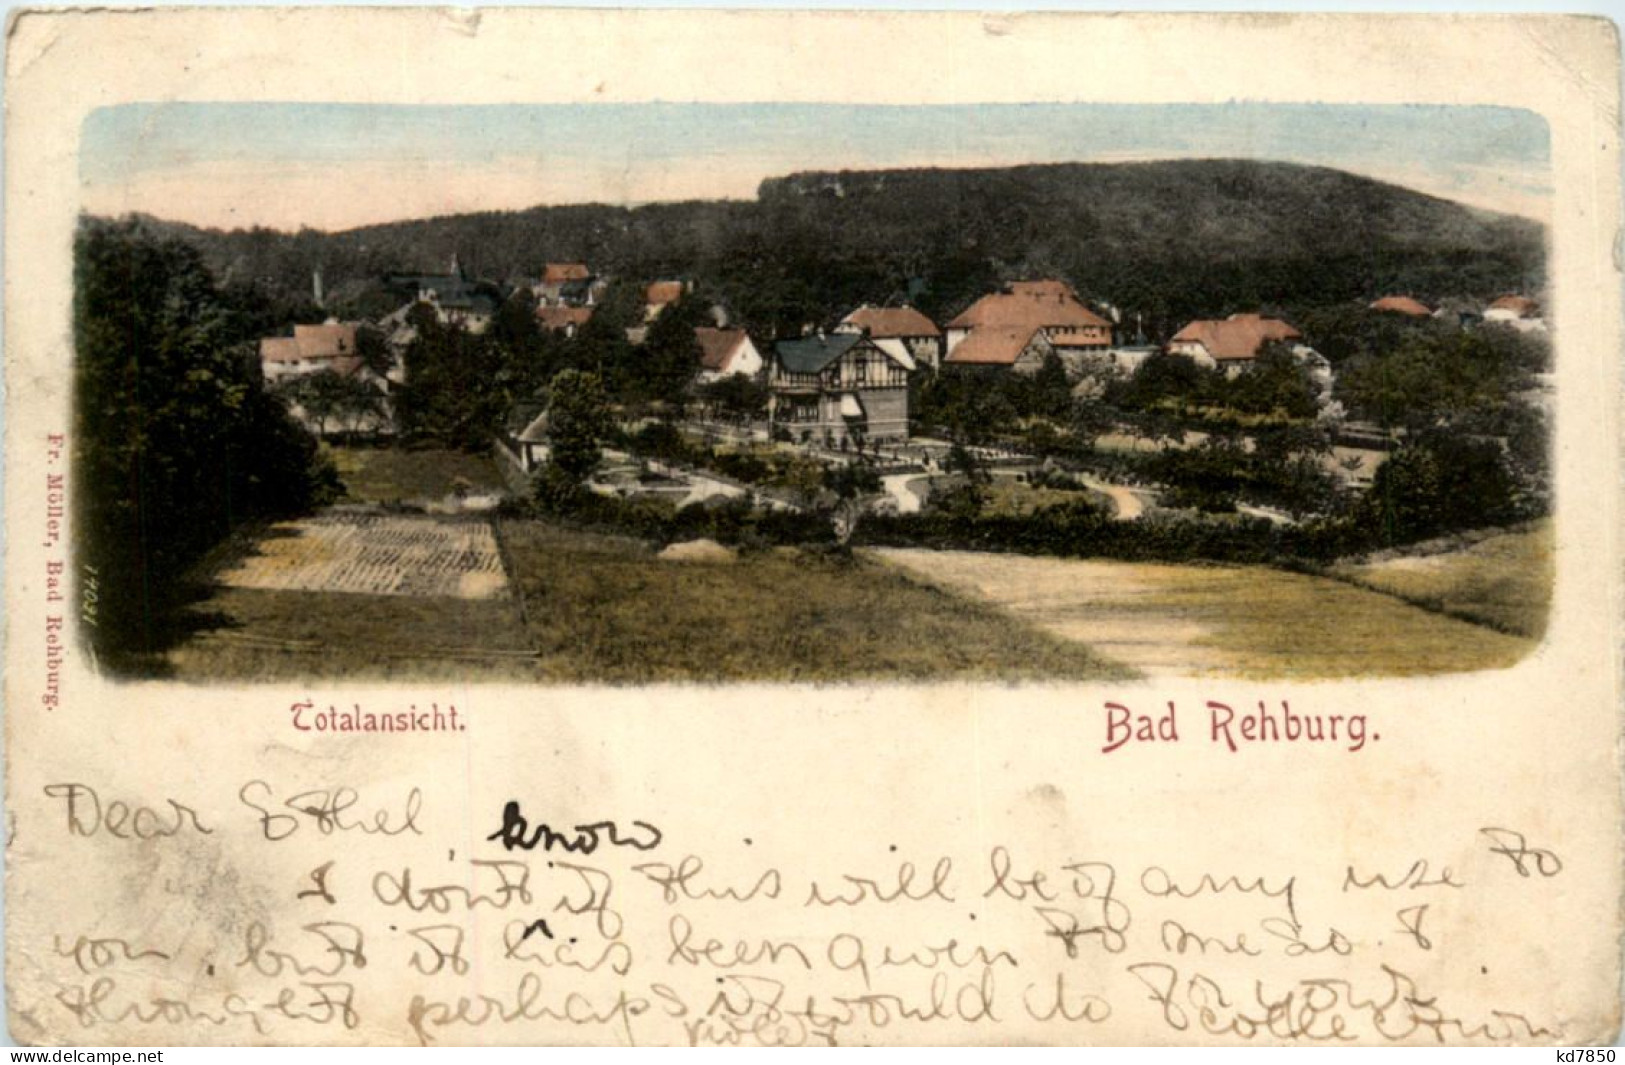 Fr. Möller, Bad Rehburg.
Totalansicht.
Bad Rehburg.
Dear Ethel
know
I dont if this will be of any use to
you, but it has been given to me so I
thought perhaps it would do for your
collection
Violet
www.delcampe.net
kd7850